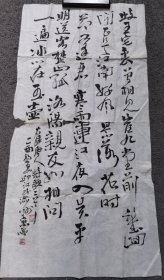 岐王宅里尋常見崔九堂前幾度聞
正是江南好風景落花時
節又逢君寒雨連江夜入吳平
明送客楚山孤洛陽親友如相問
一片冰心在玉壺